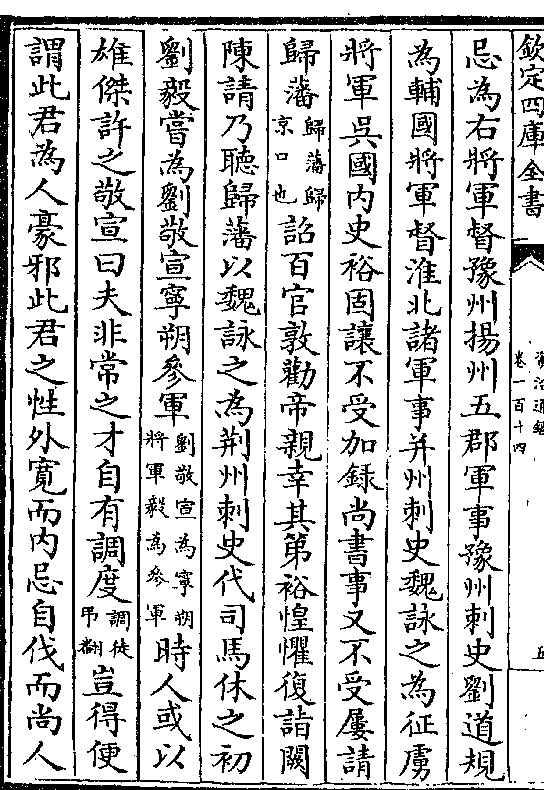 欽定四庫全書
資治通鑑
卷一百十四
忌為右將軍督豫州揚州五郡軍事豫州刺史劉道規
為輔國將軍督淮北諸軍事并州刺史魏詠之為征虜
將軍吳國內史裕固讓不受加録尚書事又不受屢請
歸藩歸藩歸京口也詔百官敦勸帝親幸其第裕惶懼復詣闕
陳請乃聽歸藩以魏詠之為荆州刺史代司馬休之初
劉毅嘗為劉敬宣寧朔參軍劉敬宣為寧朔將軍毅為參軍時人或以
雄傑許之敬宣曰夫非常之才自有調度調徒弔翻豈得便
謂此君為人豪邪此君之性外寬而內忌自伐而尚人